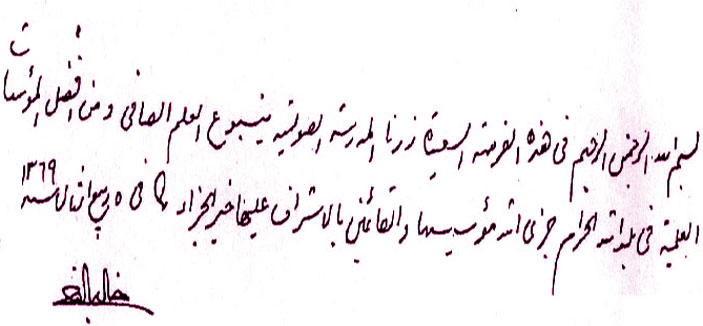 بسم الله الرحمن الرحيم في هذه الفرصة السعيدة زرنا المدرسة الصولتية ينبوع العلم الصافي ومن افضل المؤسسات
العلمية في بلد الله الحرام جزى الله مؤسسيها والقائمين بالاشراف عليها خير الجزاء في ٥ ربيع الثاني سنة ١٣٦٩